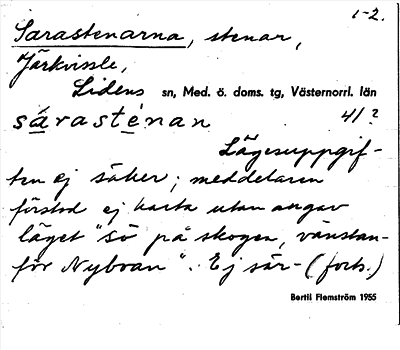 1-2.
Sarastenarna, stenar,
Järkvissle,
Lidens sn, Med. ö. doms. tg, Västernorrl. län
sárasténan 4/?
Lägesuppgif-
ten ej säker; meddelaren
förstod ej karta utan angav
läget "sö på skogen, vänstan-
för Nyboan". Ej sär- (forts.)
Bertil Flemström 1955